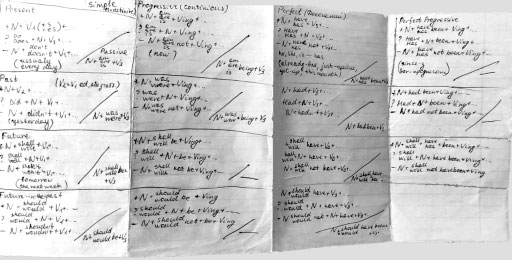 Simple
Present (Indefinite)
+ N + V1 (+s, es)
? Do
Does + N + V1..
- N + don't
doesn't + V1..
(usually
every day)
Passive
N + am
are
is + V3
Past (V2 = V1 ed,
? Did + N + V1..
- N + didn't + V1..
(yesterday)
N + was
were + V3
Future
+ N + shall
will + V1..
? shall
will + N + V1..
tomorrow
the next week
N + shall
will be + V3
Future-in-the-Past
+ N + should
would + V1..
? should
would + N + V1..
- N + shouldn't
wouldn't + V1..
N + should
would be + V3
Progressive (Continuous)
+ N + am
are
is + Ving..
? am
are
is + N + Ving..
- N + am
are
is not + Ving
(now)
N + am
are
is being + V3
+ N + was
were + Ving..
? was
were + N + Ving..
- N + was
were not + Ving..
N + was
were + being + V3
+ N + shall
will be + Ving..
? shall
will + N + be + Ving..
- N + shall
will not be + Ving..
+ N + should
would be + Ving
? should
would + N + be + Ving..
- N + should
would + not + be + Ving
Perfect
+ N + have
has + V3..
? have
has + N + V3..
- N + have
has not + V3..
+ N + had + V3..
? Had + N + V3..
- N + hadn't + V3..
N + had been + V3
+ N + shall
will have + V3..
? shall
will + N + have + V3..
- N + shall
will not have + V3..
N + shall
will have be
+ N + should
would have + V3..
? should
would + N + have + V3..
- N + should
would not + have + V3..
N + should
would have been + V3
Perfect Progressive
+ N + have
has + been + Ving..
? have
has + N + been + Ving..
- N + have
has not been + Ving..
(since
+ N + had been + Ving..
? Had + N + been + Ving..
- N + had not been + Ving..
+ N + shall
will have + been + Ving..
? shall
will + N + have + been + Ving..
- N + shall
will not have been + Ving..